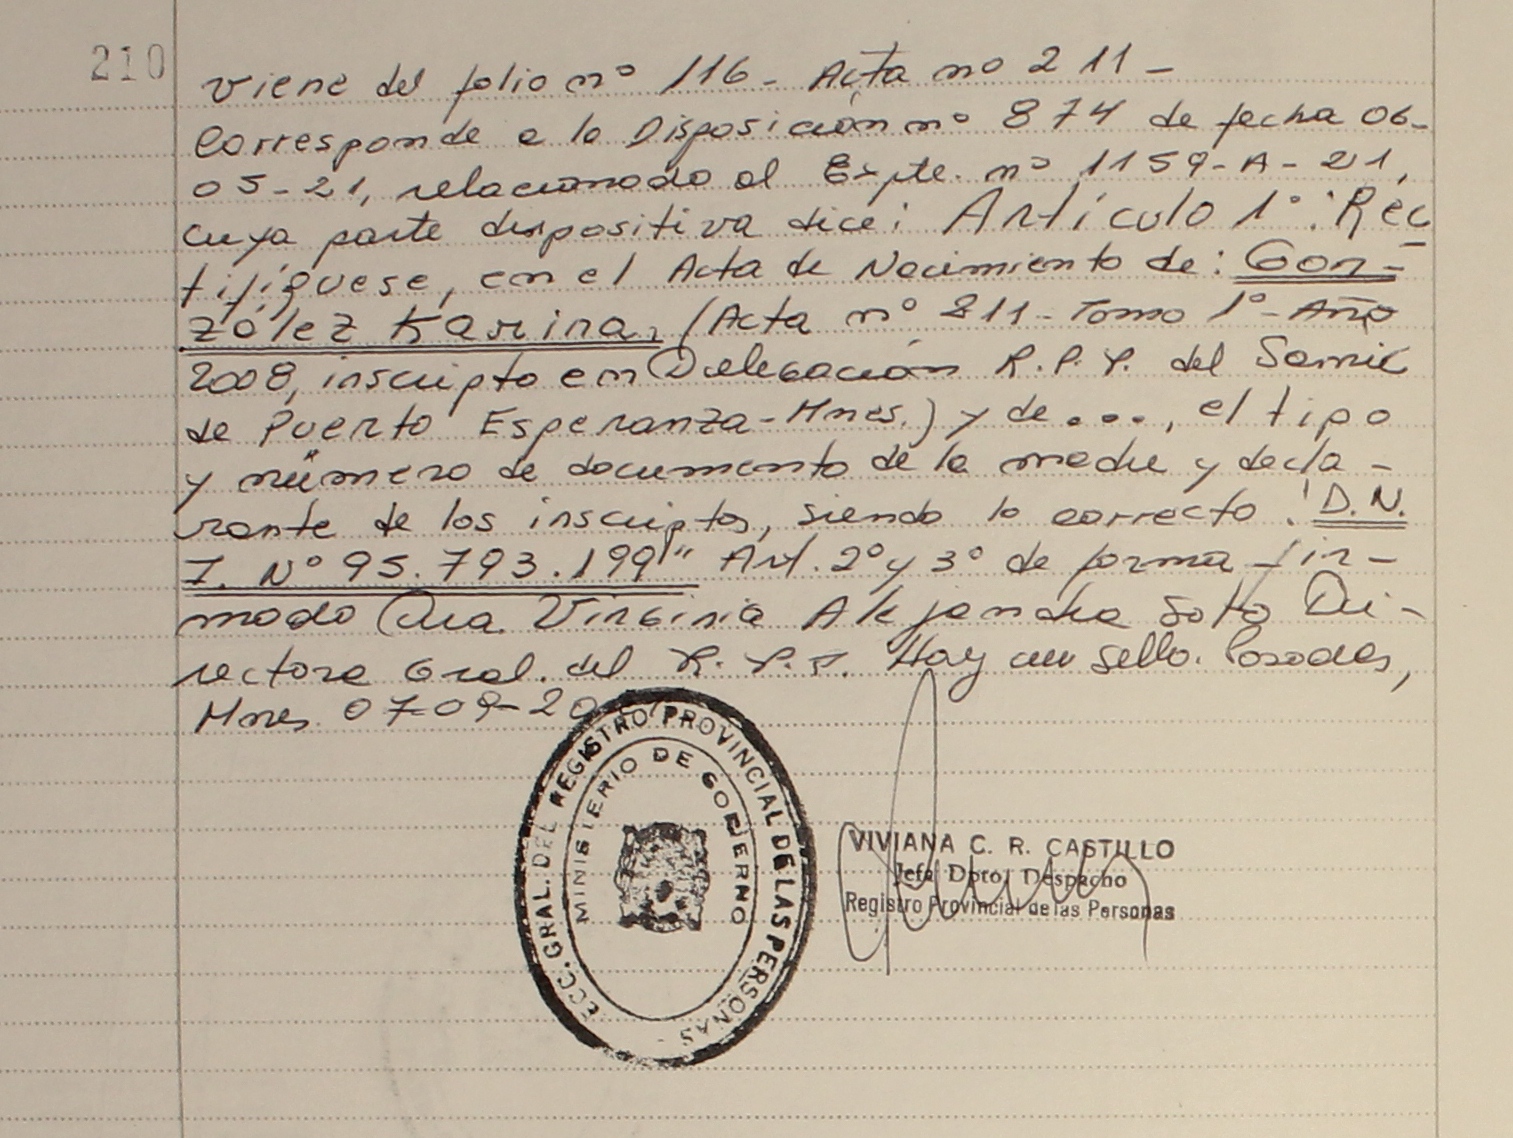 210
Viene del folio nº 116 - Acta nº 211 -
Corresponde a la Disposición nº 874 de fecha 06-
05-21, relacionado al Expte. nº 1159-A-21,
cuya parte dispositiva dice: Artículo 1º: Rec
tifíquese, en el Acta de Nacimiento de: Gon-
zález Karina, (Acta nº 211 - Tomo 1º - Año
2008, inscripto en Delegación R.P.P. del Samic
de Puerto Esperanza - Mnes.) y de ..., el tipo
y número de documento de la madre y decla -
rante de los inscriptos, siendo lo correcto: "D.N.
I. Nº 95.793.199" Art. 2º y 3º de forma fir-
mado Dra. Virginia Alejandra Soto Di-
rectora Gral. del R.P.P. Hay un sello. Posadas,
Mnes 07-09-20
ECC. GRAL. DEL REGISTRO PROVINCIAL DE LAS PERSONAS -
MINISTERIO DE GOBIERNO
VIVIANA C. R. CASTILLO
Jefa Dpto. Despacho
Registro Provincial de las Personas